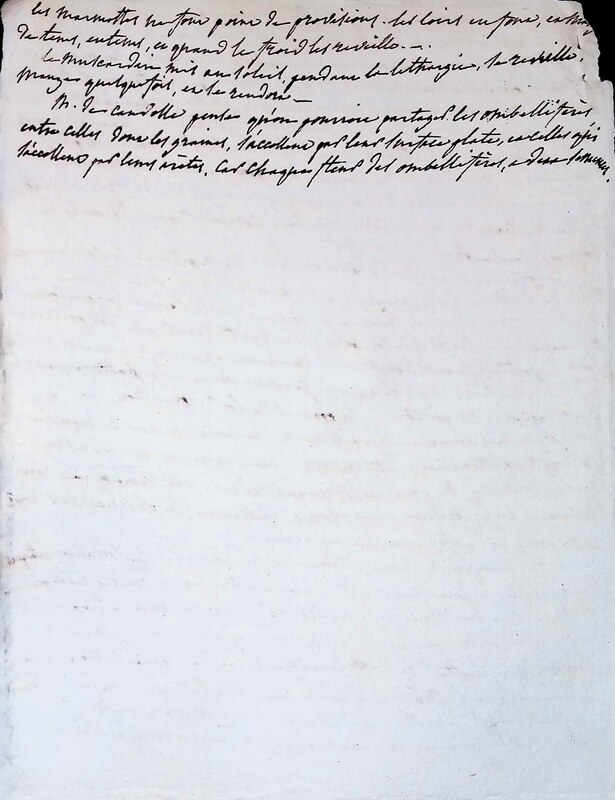 les marmottes ne font point de provisions. les loirs en font, en mang
de tems, en tems, et quand le froid les reveille. —.
le muscardin mis au soleil, pendant la lethargie, se reveille,
mange quelquefois, et se rendort —
M. de candolle pense qu'on pourroit partager les ombelliferes
entre celles dont les graines, s'accollent par leur surface plate, et celles qui
s'accollent par leurs arètes, car chaque fleur des ombellifères, a deux semences.